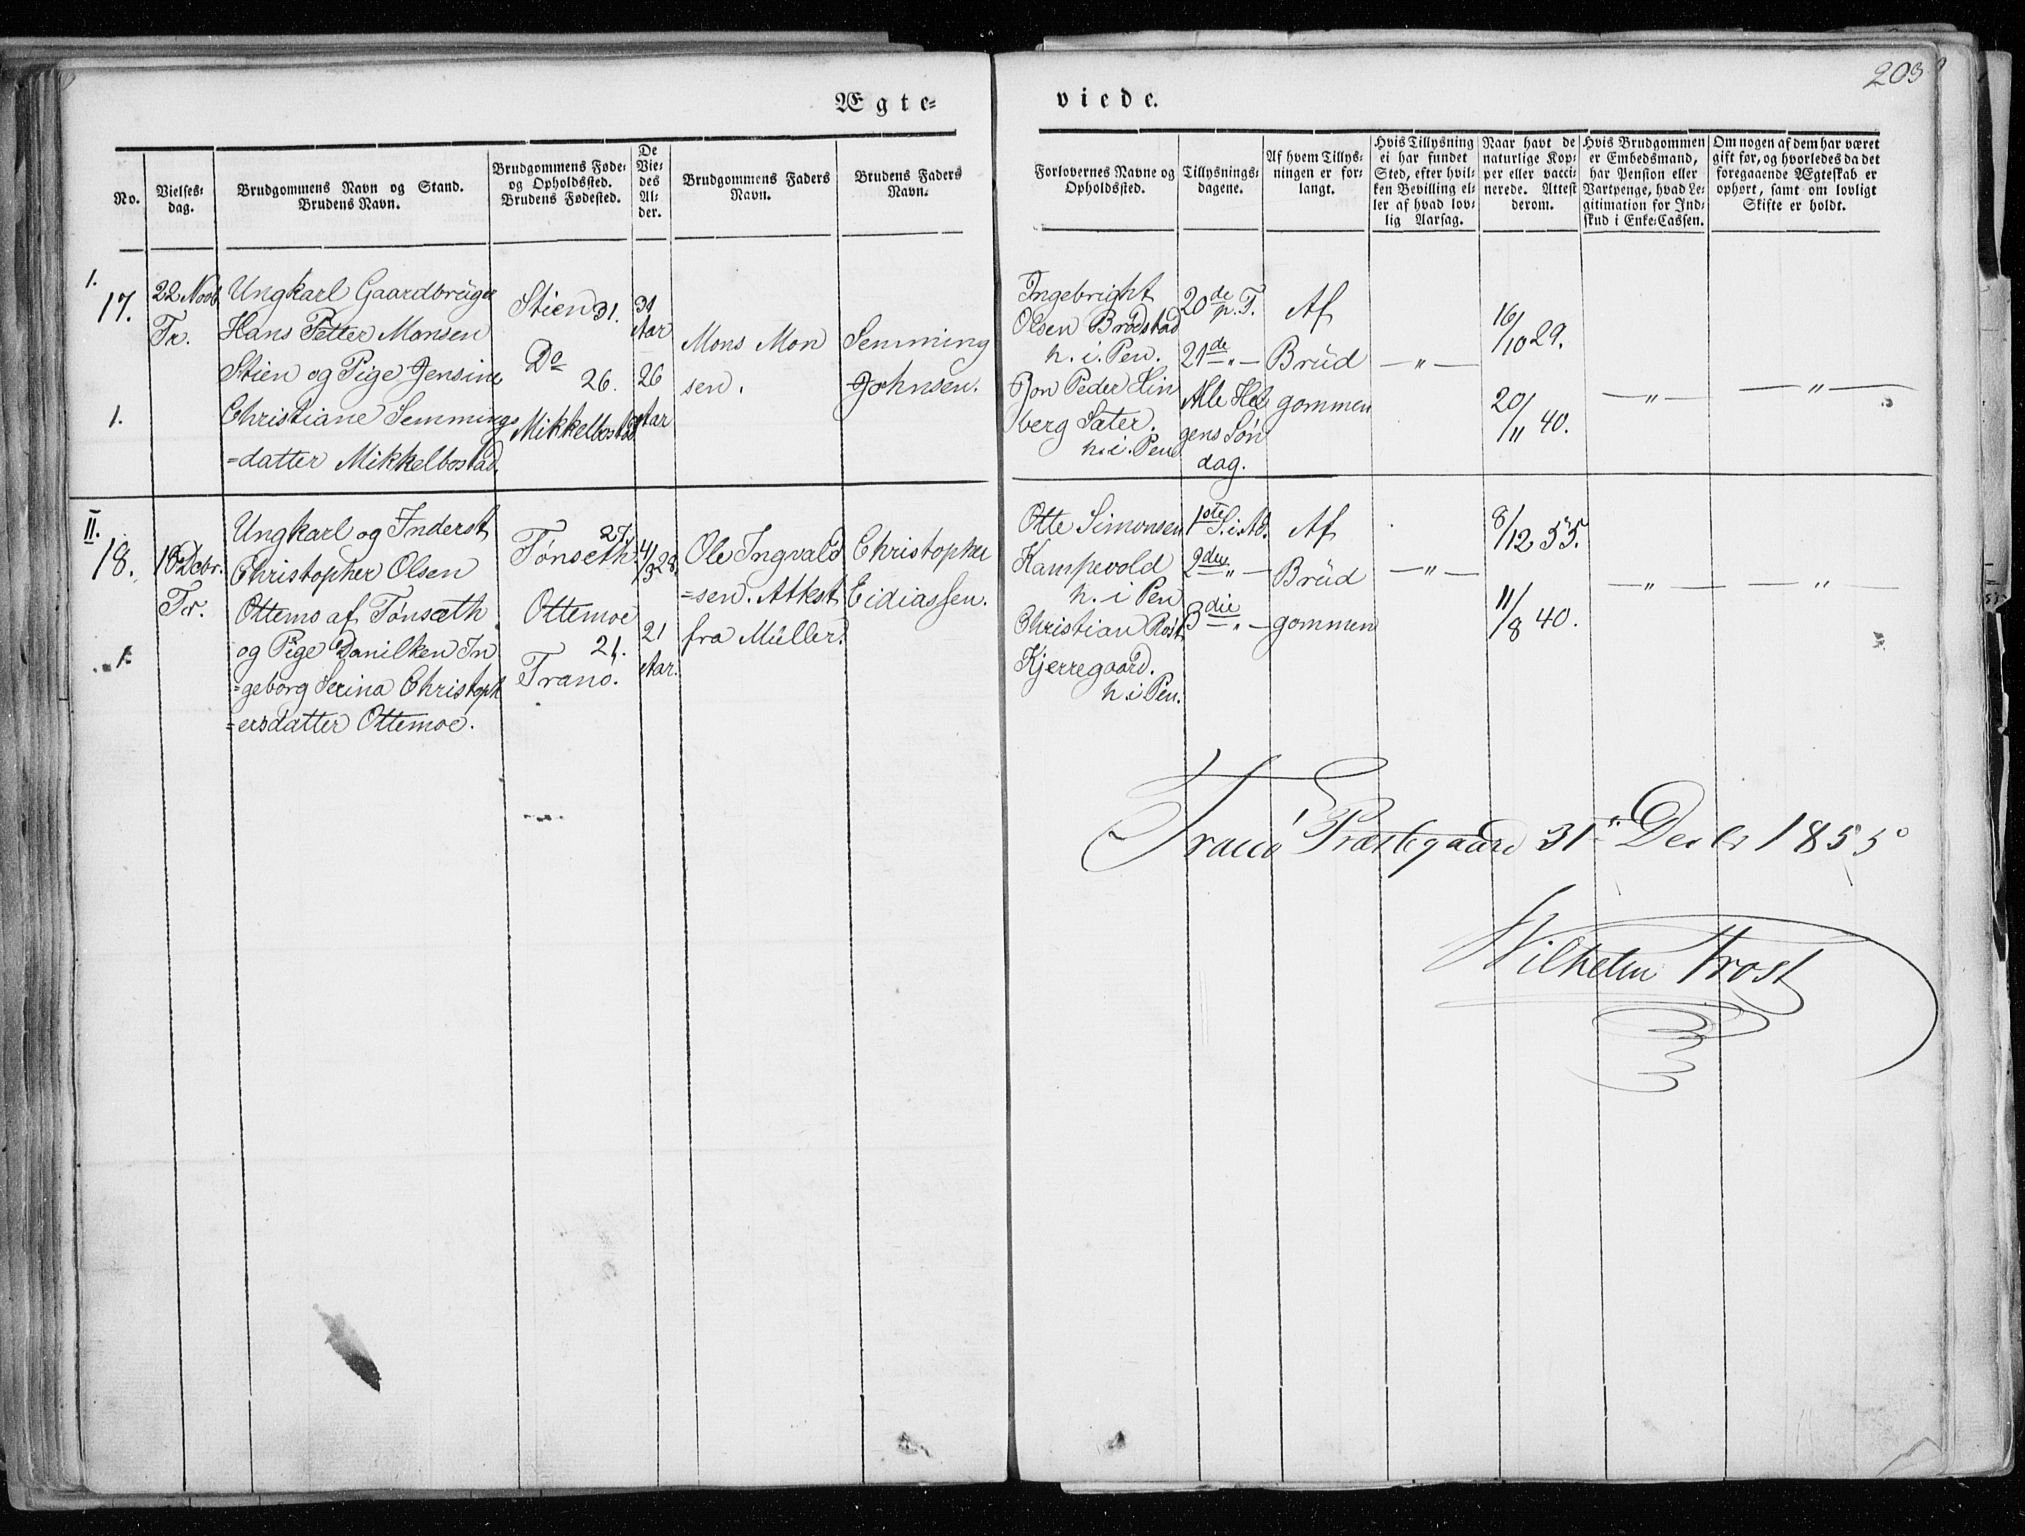 203
Ægte=
viede.
No.
Vielses=
dag.
Brudgommens Navn og Stand.
Brudens Navn.
Brudgommens Føde=
og Opholdssted.
Brudens Fødested.
De
Vie=
des
Al=
der.
Brudgommens Faders
Navn.
Brudens Faders
Navn.
Forlovernes Navne og
Opholdssted.
Tillysnings=
dagene.
Af hvem Tillys=
ningen er for=
langt.
Hvis Tillysning
ei har fundet
Sted, efter hvil=
ken Bevilling el=
ler af hvad lov=
lig Aarsag.
Naar havt de
naturlige Kop=
per eller vacci=
nerede. Attest
derom.
Hvis Brudgommen
er Embedsmand,
har Pension eller
Vartpenge, hvad Le=
gitimation for Ind=
skud i Enke=Cassen.
Om nogen af dem har været
gift før, og hvorledes da det
foregaaende Ægteskab er
ophørt, samt om lovligt
Skifte er holdt.
1.
17.
1.
22 Novb.
Tr.
Ungkarl Gaardbrüger
Hans Petter Monsen
Stien og Pige Jensine
Christiane Semmings
=datter Mikkelbostad.
Stien 31.
Do
26.
Mikkelbostad
31
Aar
26
Aar
Mons Mon
sen.
Semming
Johnsen.
Ingebright
Olsen Brodstad
h. i. Pen.
Jon Peder Hin
berg Sater.
h. i. Pen
20de p. T.
21de " —
Alle Hel
gens Søn
dag.
Af
Brüd
gommen
— " —
16/10 29.
20/11 40.
— " —
— " —
II.
18.
1.
18 Dcbr.
Tr.
Ungkarl og Inderst
Christopher Olsen
Ottemo af Tønsæth
og Pige Danilken In
=geborg Serina Christoph
=ersdatter Ottemoe.
27.
Tønseth.
Ottemoe
21.
Tranö.
4/3 28.
21
Aar.
Ole Ingvald
=sen. Attest
fra Müller.
Christopher
Eidiassen.
Otte Simonsen
Kampevold
h. i Pen
Christian Rost
Kjerregaard.
h. i Pen.
1ste S. i Ad.
2den " —
3die " —
Af
Brüd
gommen
— " —
8/12 55.
11/8 40.
— " —
— " —
Tranö Præstegaard 31te Decbr 1855
Wilhelm Frost